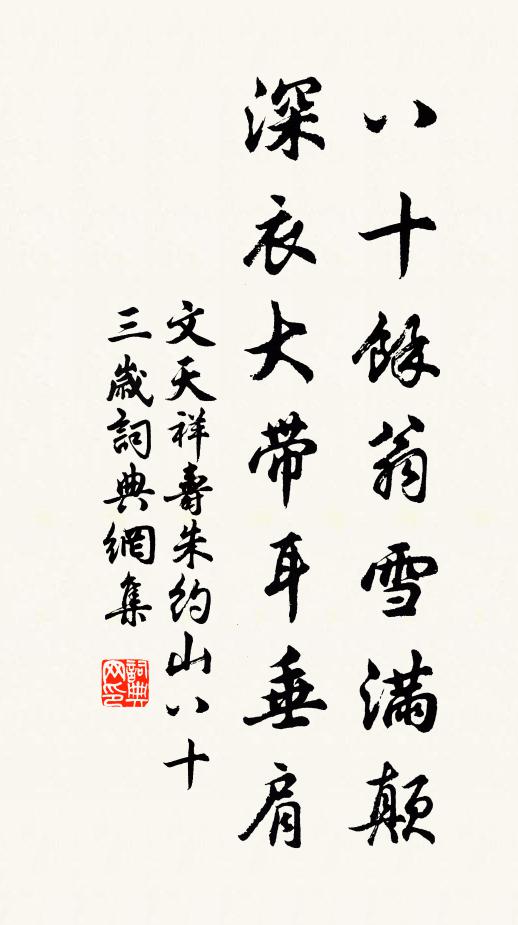 八十餘翁雪滿顛
深衣大帶耳垂肩
文天祥壽朱約山八十
三歲詞典網集
詞典网印